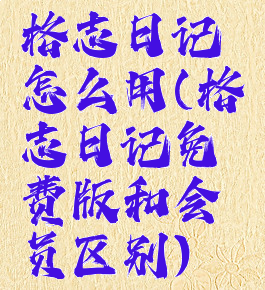 格志日记
怎么用(格
志日记免
费版和会
员区别)